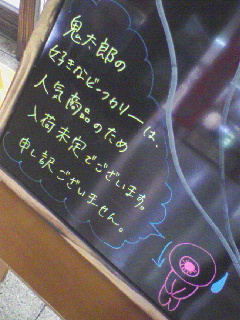 鬼太郎の
好きなビーフカリーは、
人気商品のため
入荷未定でございます。
申し訳ございません。